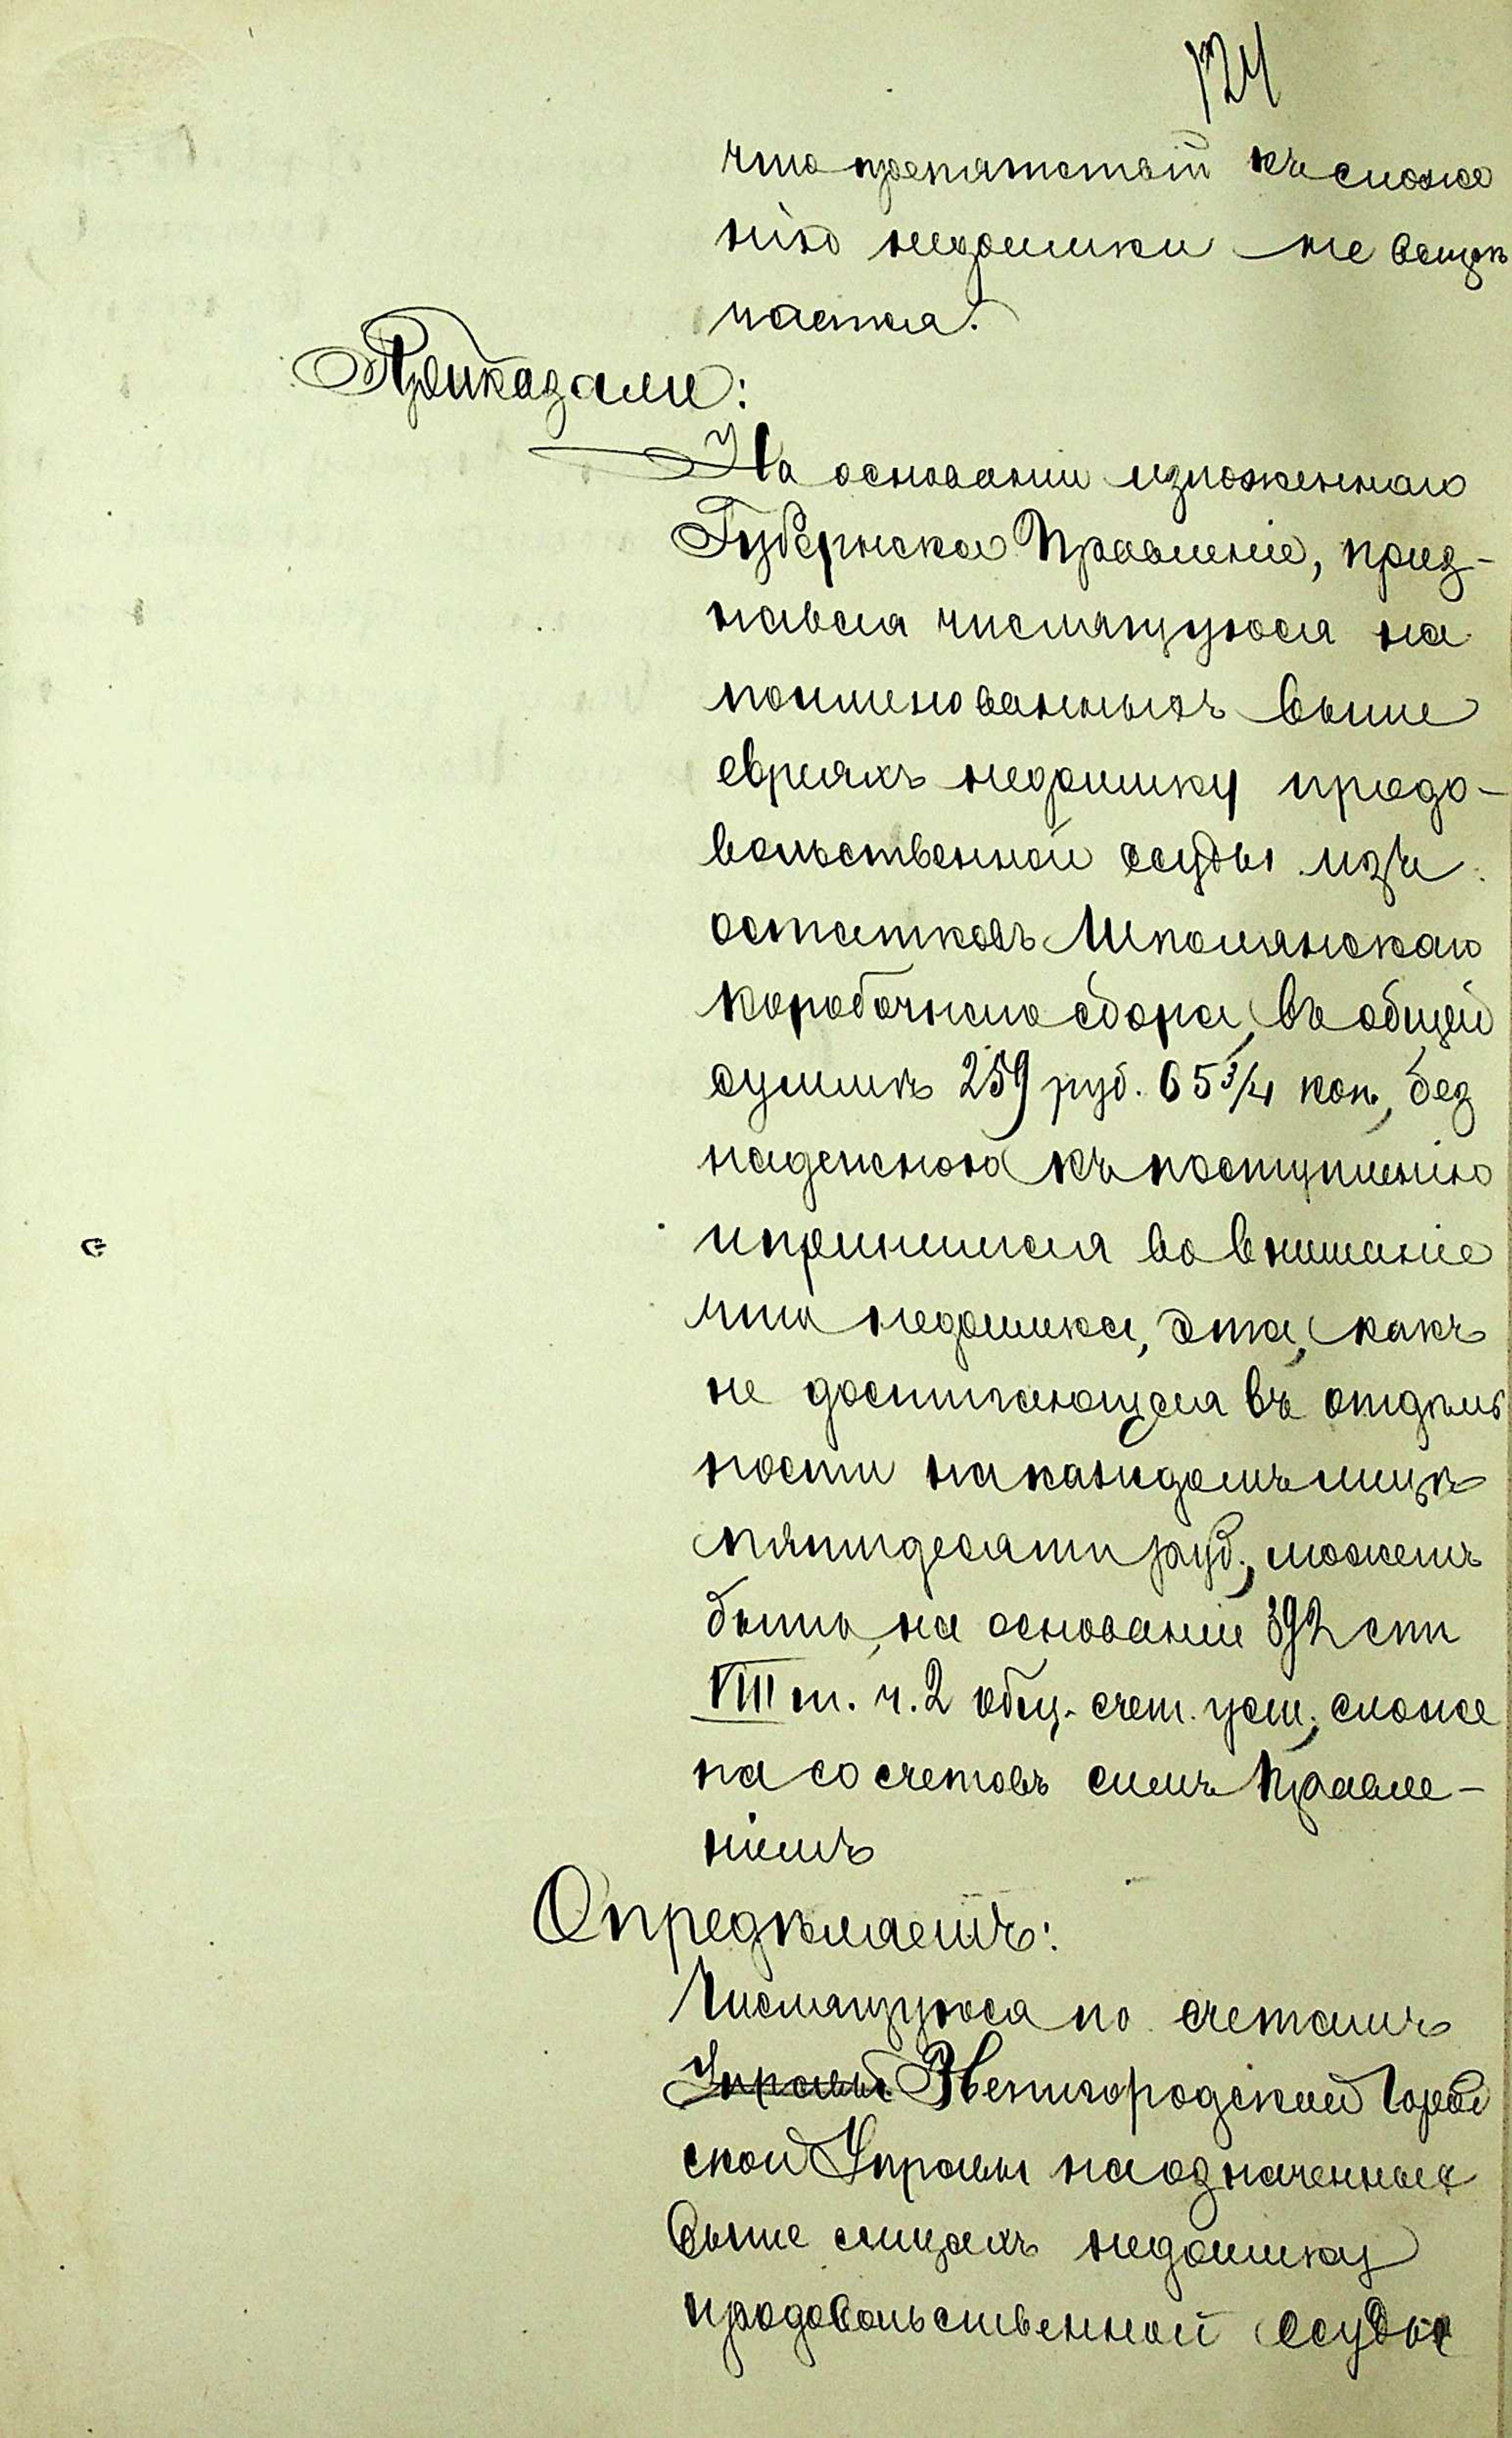 124
что препятствій къ сложе
нію недоимки не встрѣ
чается.
Приказали:
На основаніи изложеннаго
Губернское Правленіе, приз-
навая числящуюся на
поименованныхъ выше
евреяхъ недоимку продо-
вольственной ссуды изъ
остатковъ Шполянскаго
коробочнаго сбора, въ общей
суммѣ 259 руб. 65 3/4 коп., без
надежною къ поступленію
и принимая во вниманіе
что недоимка, эта, какъ
не достигающая въ отдѣль
ности на каждомъ лицѣ
пятидесяти руб., можетъ
быть, на основаніи 392 ст
VIII т. ч. 2 общ. счет. уст., сложе
на со счетовъ симъ Правле-
ніемъ
Опредѣляетъ:
Числящуюся по счетамъ
Управы Звенигородской Город
ской Управы на означенныхъ
выше лицахъ недоимку
продовольственной ссуды